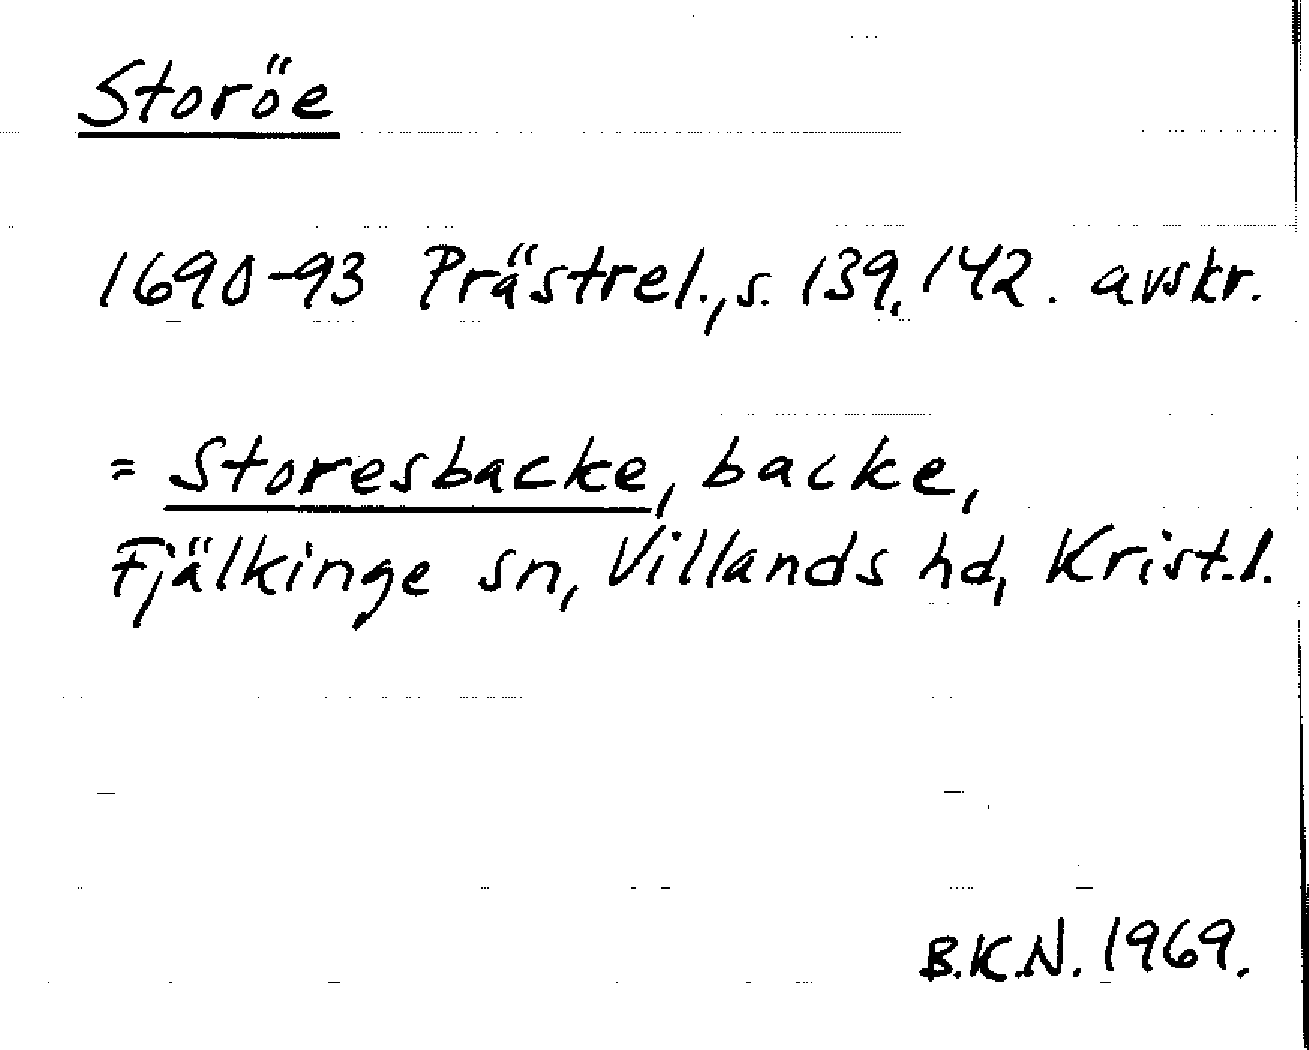 Storöe
1690-93 Prästrel., s. 139, 142. avskr.
= Storesbacke, backe,
Fjälkinge sn, Villands hd, Krist.l.
B.K.N. 1969.